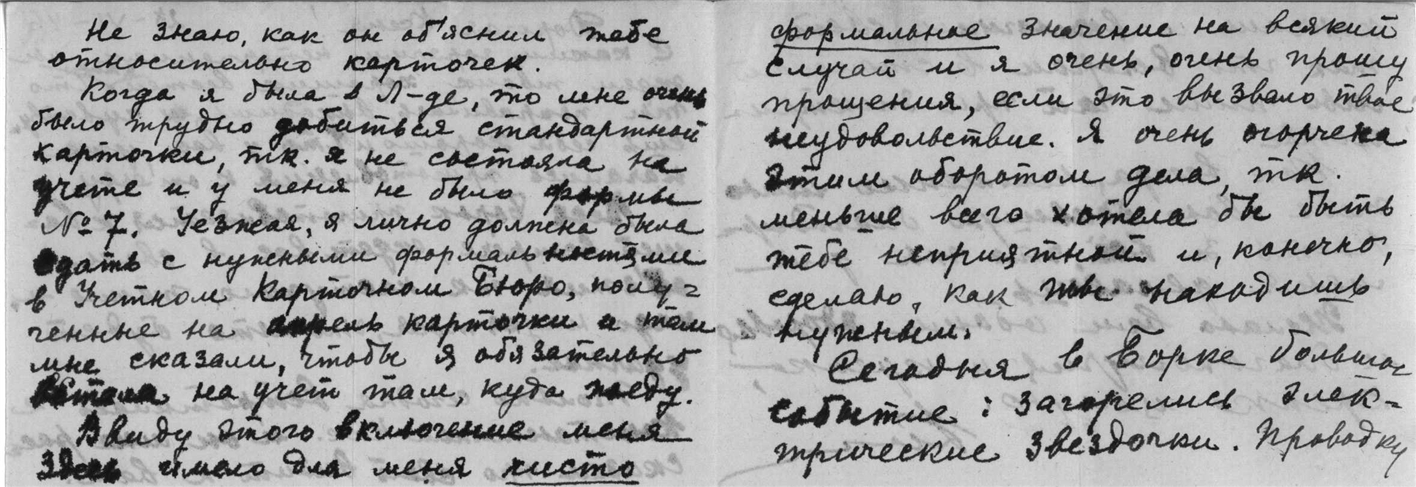 Не знаю, как он об'яснил тебе
относительно карточек.
Когда я была в Л-де, то мне очень
было трудно добиться стандартной
карточки, т.к. я не состояла на
учете и у меня не было формы
№ 7. Уезжая, я лично должна была
сдать с нужными формальностями
в Учетном Карточном Бюро, полу=
ченные на апрель карточки и там
мне сказали, чтобы я обязательно
встала на учет там, куда поеду.
Ввиду этого включение меня
здесь имело для меня чисто
формальное значение на всякий
случай и я очень, очень прошу
прощения, если это вызвало твое
неудовольствие. Я очень огорчена
этим оборотом дела, т.к.
меньше всего хотела бы быть
тебе неприятной и, конечно,
сделаю, как ты находишь
нужным.
Сегодня в Борке большое
событие: загорелись элек=
трические звездочки. Проводку